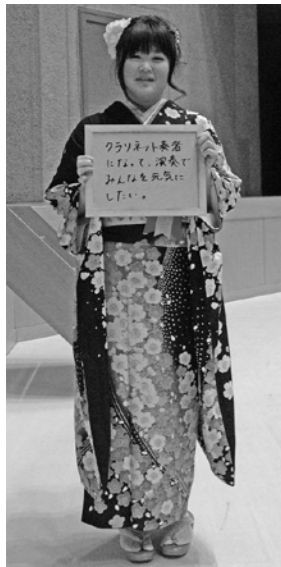 クラリネット奏者
になって、演奏で
みんなを元気に
したい。